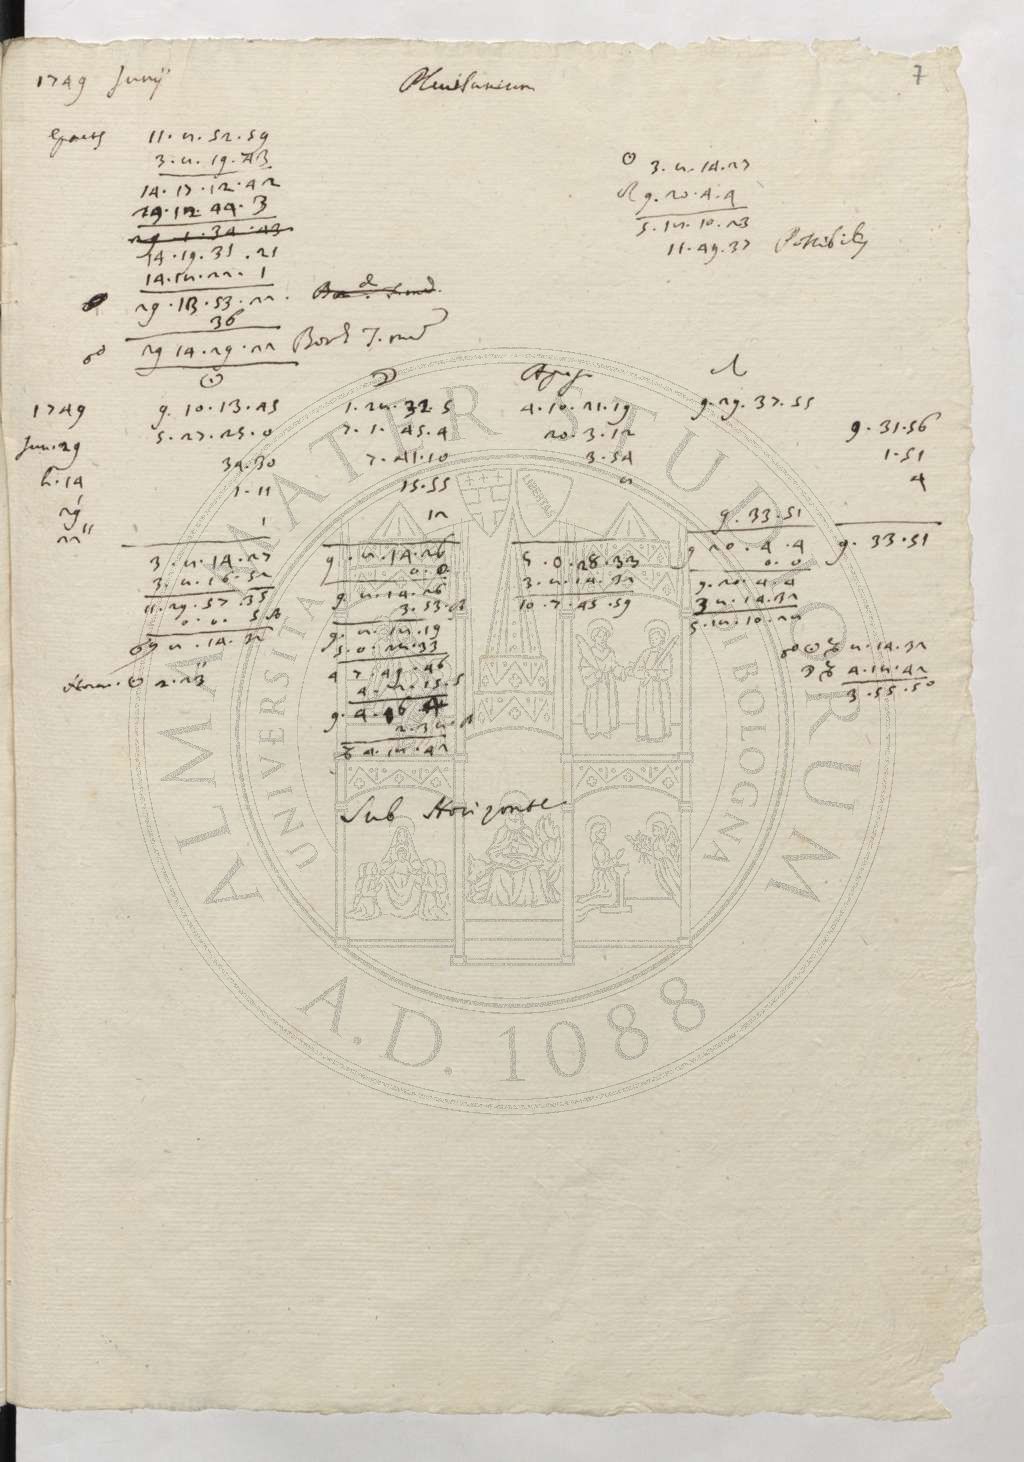 7
1749 Junij Plenilunium
Epacts 11. 8. 52. 59
3. 8. 19. 43
14. 17. 12. 42
29. 12. 44. 3
29. 1. 34. 43
14. 19. 31. 21
14. 18. 22. 1
29. 13. 53. 22.
36
☍ 29 14. 29. 22
☉ 3. 8. 14. 27
☊ 9. 20. 4. 4
5. 18. 10. 23
11. 49. 37 Possibilis
☉ ☽ Apog. ☊
1749 9. 10. 13. 45 1. 28. 32. 5 4. 10. 21. 19 9. 29. 37. 55
Jun. 29 5. 27. 25. 0 7. 1. 45. 4 20. 3. 12 9. 31. 56
h. 14 34. 30 7. 41. 10 3. 54 1. 51
29' 1. 11 15. 55 8 4
22'' 1 12 9. 33. 51
3. 8. 14. 27 9. 8. 14. 26 5. 0. 28. 33 9 20. 4. 4 9. 33. 51
3. 8. 16. 52 0. 0 3. 8. 14. 32 0. 0
11. 29. 57. 35 9 8. 14. 26 10. 7. 45. 59 9. 20. 4. 4
0. 0. 5 A 3. 53. A 3 8. 14. 32
☍ 8. 14. 32 9. 8. 18. 19 5. 18. 10. 28
Horar. ☉ 2. 23'' 5. 0. 28. 33 ☍ ☉ ♑ 8. 14. 32
4 7. 49. 46 ☽ ♑ 4. 18. 42
4. 2. 15. S 3. 55. 50
9. 4. 16 4
2. 38. A
♑ 4. 18. 42
Sub Horizonte
ALMA MATER STUDIORUM
UNIVERSITÀ DI BOLOGNA
LIBERTAS
A.D. 1088